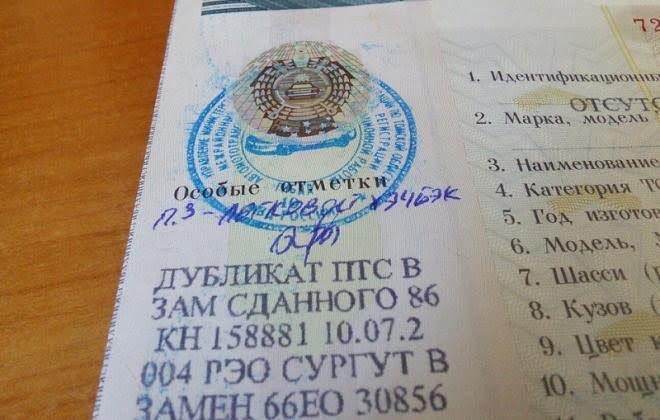 72
1. Идентификационны
ОТСУТ
2. Марка, модель
3. Наименование
4. Категория ТС
5. Год изготов
6. Модель,
7. Шасси (
8. Кузов (
9. Цвет к
10. Мощн
Особые отметки
п.3 - легковой хэчбэк
ДУБЛИКАТ ПТС В
ЗАМ СДАННОГО 86
КН 158881 10.07.2
004 РЭО СУРГУТ В
ЗАМЕН 66ЕО 30856